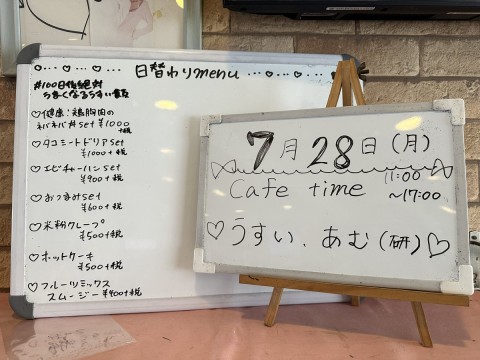 日替わりmenu
#100日後絶対
うまくなるうすい食改
♡健康!鶏胸肉の
ネバネバ丼set ¥1000
+税
♡タコミートドリアset
¥1000+税
♡エビチャーハンset
¥900+税
♡おつまみset
¥600+税
♡米粉クレープ
¥500+税
♡ホットケーキ
¥500+税
♡フルーツミックス
スムージー¥400+税
7月28日(月)
Cafe time 11:00
~17:00
♡うすい、あむ(研)♡